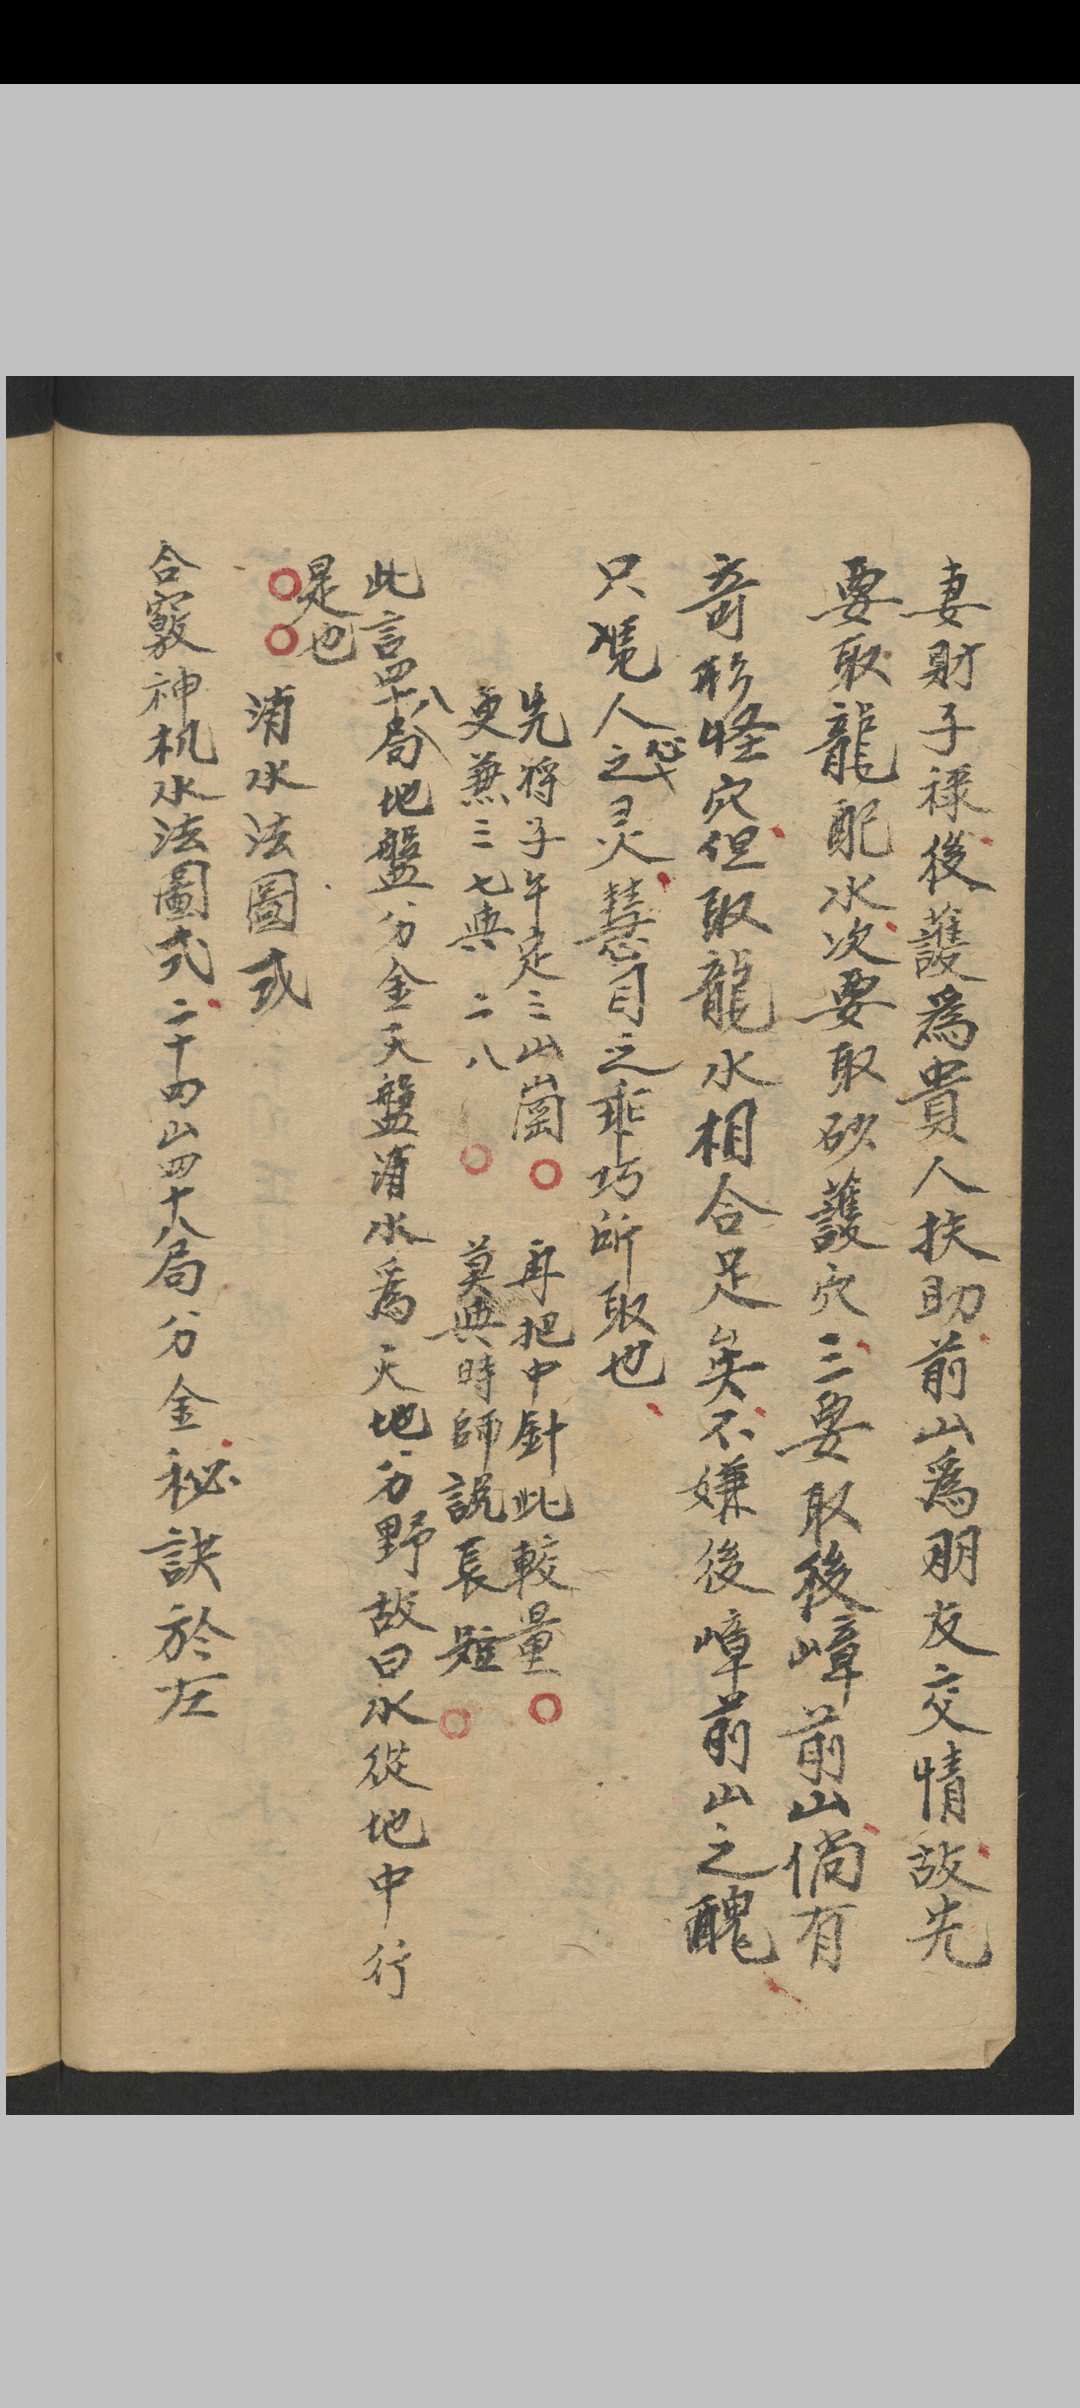 妻財子祿後護為貴人扶助前山為朋友交情故先
要取龍配水次要取砂護穴三要取後嶂前山倘有
奇形怪穴但取龍水相合足矣不嫌後嶂前山之醜
只覓人心之灵慧目之乖巧所取也
先将子午定三山崗 再把中針此較量
更兼三七與二八 莫與時師說長短
此言四十八局地盤分金天盤消水為天地分野故曰水從地中行
是也
消水法圖式
合竅神机水法圖式二十四山四十八局分金秘訣於左